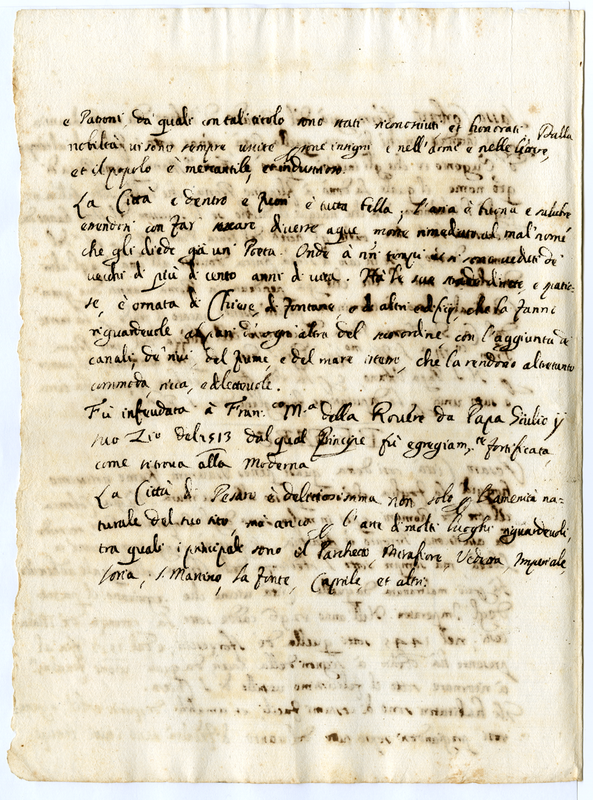 e Patroni da quali con tali titolo sono stati riconosciuti et honorati. Dalla
nobiltà vi sono sempre uscite psone insigni e nell'armi e nelle lettere,
et il popolo è mercantile, et industrioso.
La Città e dentro e fuori è tutta bella; l'aria è buona e salubre
essendosi con far seccare diverse aque morte rimediato al mal'nome
che gli diede già un Poeta. Onde à nri tempi si sono veduti de
vecchi di più di cento anni di vita. Hà le sue strade dirette e spatio-
se, è ornata di Chiese, di fontane, e di altri edifitij che la fanno
riguardevole al pari di ogni altra del suo ordine con l'aggiunta de
canali, de' rivi del fiume, e del mare istesso, che la rendono altretanto
commoda, ricca, e dilettevole.
Fù infeudata à Fran.co M.a della Rovere da Papa Giulio ij
suo Zio del 1513 dal qual Principe fù egregiam.te fortificata
come si trova alla Moderna
La Città di Pesaro è delitiosissima non solo p l'amenità na=
turale del suo sito, mà anco p l'arte di molti luoghi riguardevoli,
tra quali i principali sono il Barchetto, Mirafiore, Vedetta, Imperiale,
Soria, S. Martino, la fonte, Caprile et altri.